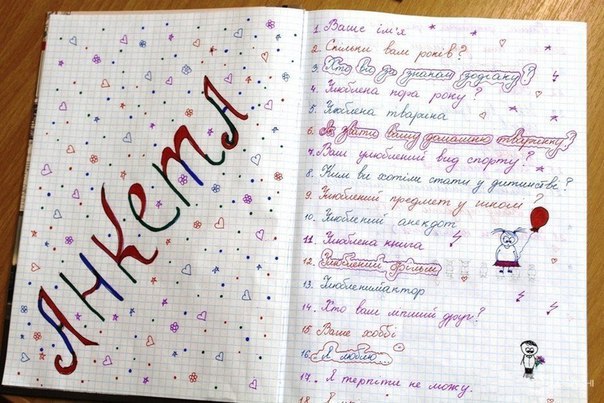 АНКЕТА
1. Ваше ім'я
2. Скільки вам років?
3. Хто ви за знаком зодіаку?
4. Улюблена пора року?
5. Улюблена тварина
6. Як звати вашу домашню тваринку?
7. Ваш улюблений вид спорту?
8. Ким ви хотіли стати у дитинстві?
9. Улюблений предмет у школі?
10. Улюблений анекдот
11. Улюблена книга
12. Улюблений фільм
13. Улюблений актор
14. Хто ваш ліпший друг?
15. Ваше хоббі
16. Я люблю
17. Я терпіти не можу.
18.